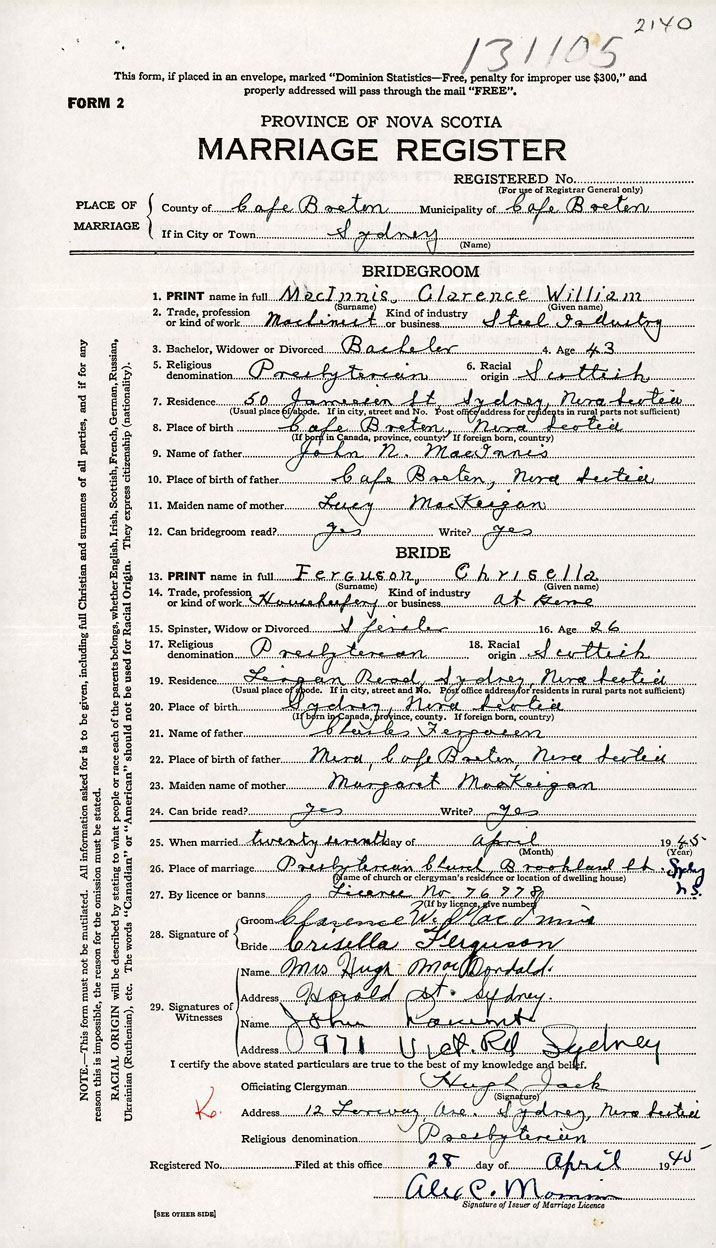 2140
131105
This form, if placed in an envelope, marked "Dominion Statistics—Free, penalty for improper use $300," and
properly addressed will pass through the mail "FREE".
FORM 2
PROVINCE OF NOVA SCOTIA
MARRIAGE REGISTER
REGISTERED No.
(For use of Registrar General only)
PLACE OF MARRIAGE
County of Cape Breton Municipality of Cape Breton
If in City or Town Sydney
(Name)
BRIDEGROOM
1. PRINT name in full MacInnis, Clarence William
(Surname) (Given name)
2. Trade, profession or kind of work Machinist Kind of industry or business Steel Industry
3. Bachelor, Widower or Divorced Bachelor 4. Age 43
5. Religious denomination Presbyterian 6. Racial origin Scottish
7. Residence 50 Jameson St, Sydney, Nova Scotia
(Usual place of abode. If in city, street and No. Post office address for residents in rural parts not sufficient)
8. Place of birth Cape Breton, Nova Scotia
(If born in Canada, province, county? If foreign born, country)
9. Name of father John N. MacInnis
10. Place of birth of father Cape Breton, Nova Scotia
11. Maiden name of mother Lucy MacKeigan
12. Can bridegroom read? yes Write? yes
BRIDE
13. PRINT name in full Ferguson, Chrisella
(Surname) (Given name)
14. Trade, profession or kind of work Housekeeping Kind of industry or business at Home
15. Spinster, Widow or Divorced Spinster 16. Age 26
17. Religious denomination Presbyterian 18. Racial origin Scottish
19. Residence Lingan Road, Sydney, Nova Scotia
(Usual place of abode. If in city, street and No. Post office address for residents in rural parts not sufficient)
20. Place of birth Sydney, Nova Scotia
(If born in Canada, province, county. If foreign born, country)
21. Name of father Charles Ferguson
22. Place of birth of father Mira, Cape Breton, Nova Scotia
23. Maiden name of mother Margaret MacKeigan
24. Can bride read? yes Write? yes
25. When married twenty seventh day of April 1945
(Month) (Year)
26. Place of marriage Presbyterian Church Brookland St. Sydney N.S.
(Name of church or clergyman's residence or location of dwelling house)
27. By licence or banns Licence No. 76978
(If by licence, give number)
28. Signature of
Groom Clarence W. MacInnis
Bride Crisella Ferguson
29. Signatures of Witnesses
Name Mrs Hugh MacDonald.
Address Herald St. Sydney.
Name John
Address 971 Vict. Rd Sydney
I certify the above stated particulars are true to the best of my knowledge and belief.
Officiating Clergyman Hugh Jack
(Signature)
K.
Address 12 Ave. Sydney, Nova Scotia
Religious denomination Presbyterian
Registered No. Filed at this office 28 day of April 1945
Alex C.
Signature of Issuer of Marriage Licence
[SEE OTHER SIDE]
NOTE.—This form must not be mutilated. All information asked for is to be given, including full Christian and surnames of all parties, and if for any
reason this is impossible, the reason for the omission must be stated.
RACIAL ORIGIN will be described by stating to what people or race each of the parents belongs, whether English, Irish, Scottish, French, German, Russian,
Ukrainian (Ruthenian), etc. The words "Canadian" or "American" should not be used for Racial Origin. They express citizenship (nationality).